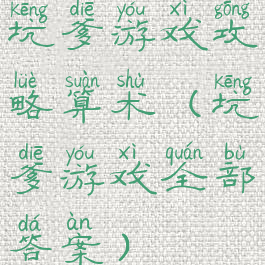 kēng diē yóu xì gōng
坑爹游戏攻
lüè suàn shù kēng
略算术（坑
diē yóu xì quán bù
爹游戏全部
dá àn
答案）